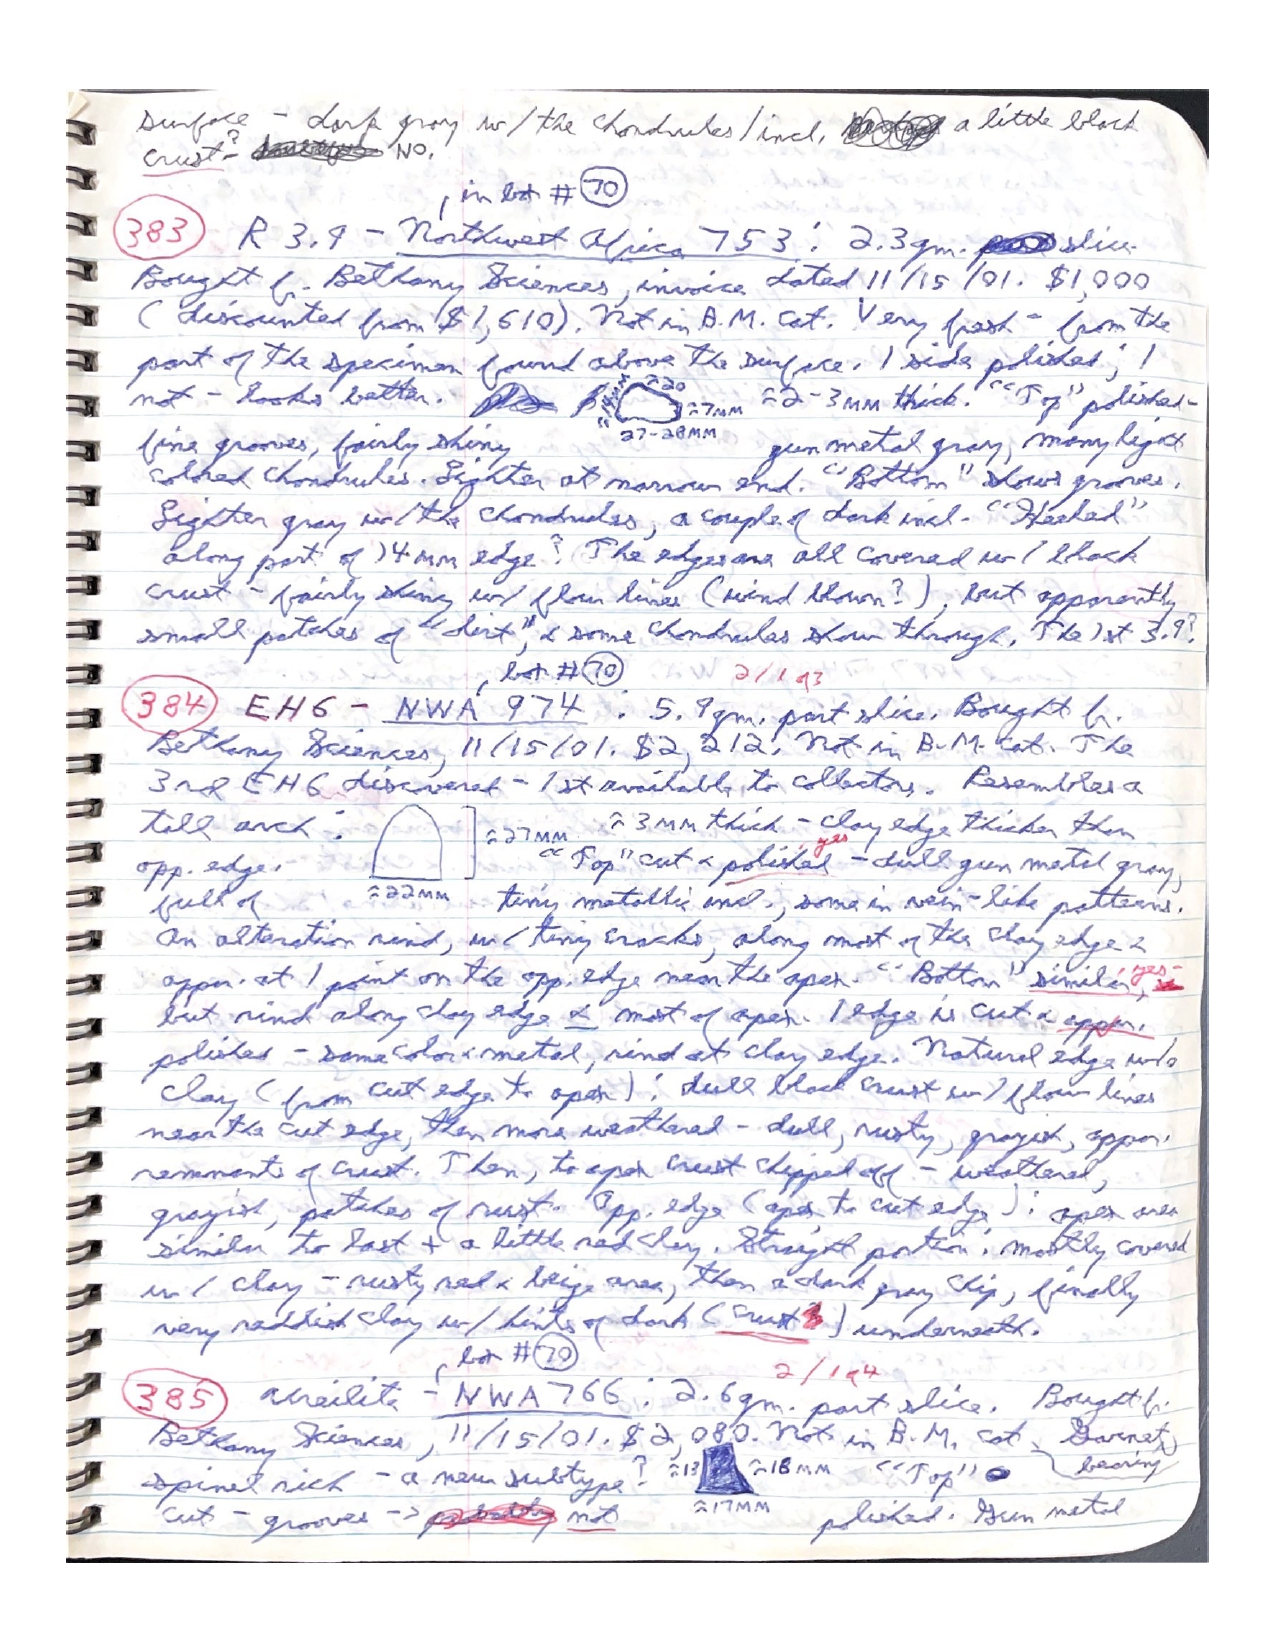 surface - dark gray w/ the chondrules/incl. a little black
crust-? NO.
, in lot # 70
383 R 3.9 - Northwest Africa 753: 2.3gm. slice.
Bought fr. Bethany Sciences, invoice dated 11/15/01. $1,000
(discounted from $1,610). Not in B.M. Cat. Very fresh - from the
part of the specimen found above the surface. 1 side polished; 1
not - looks better. ≈20 ≈7MM ≈2-3MM thick. "Top" polished-
27-28MM
fine grooves, fairly shiny gun metal gray, many light
colored chondrules. Lighter at narrow end. "Bottom" shows grooves.
Lighter gray w/ the chondrules, a couple of dark incl. "Heehed"
along part of 14mm edge? The edges are all covered w/ black
crust - fairly shiny w/ flow lines (wind blown?), but apparently
small patches of "dirt", & some chondrules show through. The 1st 3.9?
, lot # 70 2/1 of 3
384 EH6 - NWA 974: 5.9gm. part slice. Bought fr.
Bethany Sciences, 11/15/01. $2,212. Not in B.M. cat. The
3rd EH6 discovered - 1st available to collectors. Resembles a
tall arch: ≈27MM ≈3MM thick - clay edge thicker than
opp. edge. "Top" cut & polished yes - dull gun metal gray,
≈22MM
full of tiny metallic incl., some in vein-like patterns.
An alteration rind, w/ tiny cracks, along most of the clay edge &
appar. at 1 point on the opp. edge near the apex. "Bottom" similar, yes-
but rind along clay edge & most of apex. 1 edge is cut & appar.
polished - same color & metal, rind at clay edge. Natural edge w/o
clay (from cut edge to apex): dull black crust w/ flow lines
near the cut edge, then more weathered - dull, rusty, grayish, appar.
remnants of crust. Then, to apex crust chipped off - weathered,
grayish, patches of rust. Opp. edge (apex to cut edge): apex area
similar to last + a little red clay. Straight portion: mostly covered
w/ clay - rusty red & beige area, then a dark gray chip, finally
very reddish clay w/ hints of dark (crust) underneath.
, lot # 70
2/1 of 4
385 Ureilite - NWA 766: 2.6gm. part slice. Bought fr.
Bethany Sciences, 11/15/01. $2,080. Not in B.M. cat. Garnet
bearing
spinel rich - a new subtype? ≈13 ≈18MM "Top"
≈17MM
cut - grooves -> not polished. Gun metal